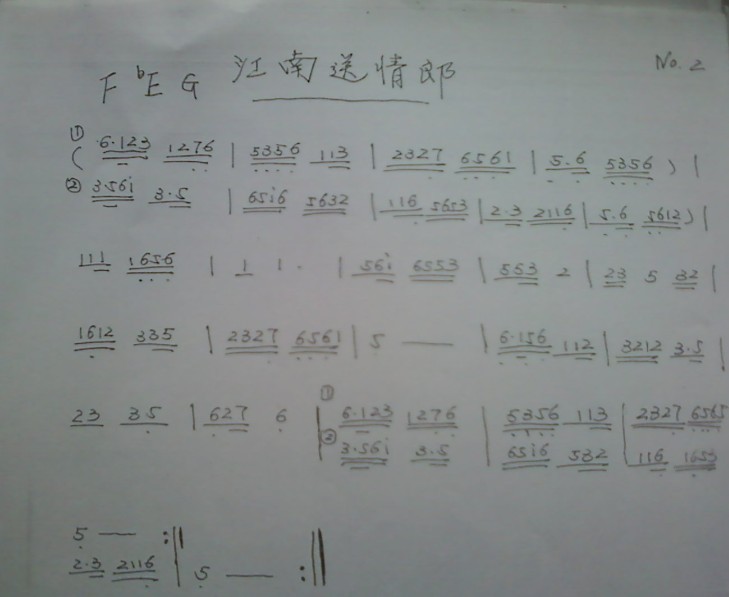 F ᵇE G 江南送情郎 No. 2
① ( 6·123 1276 | 5356 113 | 2327 6561 | 5.6 5356 ) |
② 3·56i 3·5 | 65i6 5632 | 116 5653 | 2·3 2116 | 5.6 5612 ) |
111 1656 | 1 1 · | 56i 6553 | 553 2 | 23 5 32 |
1612 335 | 2327 6561 | 5 — | 6·156 112 | 3212 3·5 |
23 35 | 627 6 | ① 6·123 1276 | 5356 113 | 2327 6565
② 3·56i 3·5 | 65i6 532 | 116 1653
5 — :||
2·3 2116 | 5 — :||